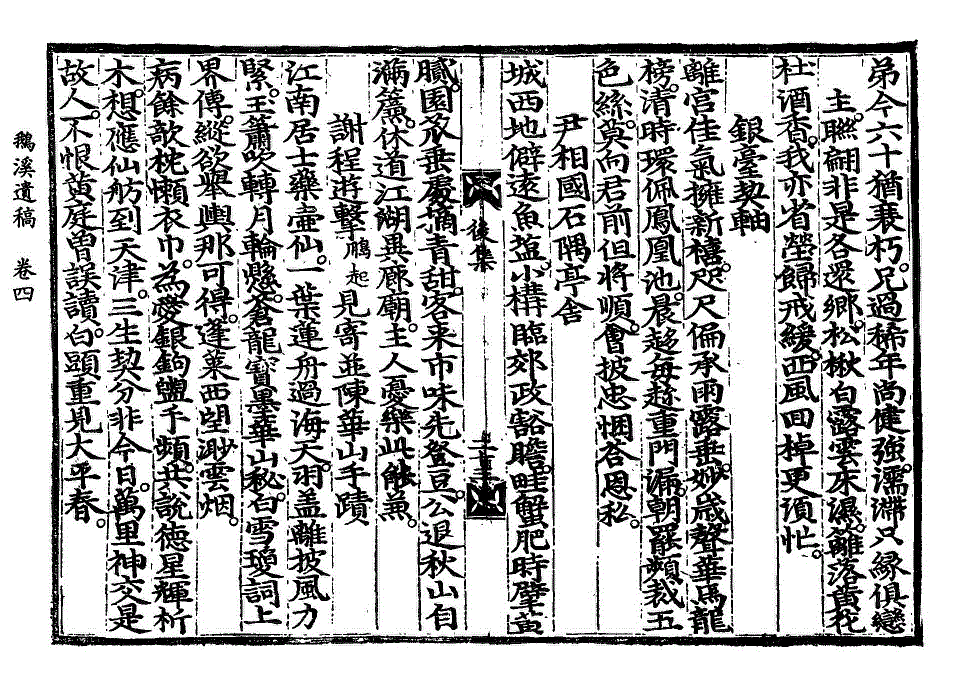 弟今六十猶衰朽。兄過稀年尚健強。濡滯只緣俱戀
主。聯翩非是各還鄕。松楸白露雲衣濕。籬落黃花
杜酒香。我亦省塋歸戒緩。西風回棹更須忙。
銀臺契軸
離宮佳氣擁新禧。咫尺偏承雨露垂。妙歲聲華馬龍
榜。淸時環佩鳳凰池。晨趨每趁重門漏。朝罷頻裁五
色絲。莫向君前但將順。會披忠悃答恩私。
尹相國石隅亭舍
城西地僻遠魚鹽。小構臨郊政豁瞻。畦蟹肥時擘黃
膩。園茂垂處摘靑甜。客來市味先登豆。公退秋山自
滿簾。休道江湖異廊廟。主人憂樂此能兼。
謝程遊擊鵬起見寄並陳華山手蹟
江南居士藥壺仙。一葉蓮舟過海天。羽蓋離披風力
緊。玉簫吹轉月輪懸。蒼龍寶墨華山秘。白雪瓊詞上
界傳。縱欲擧輿那可得。蓬萊西望渺雲烟。
病餘欹枕懶衣巾。爲愛銀鉤盥手頻。共說德星輝析
木。想應仙舫到天津。三生契分非今日。萬里神交是
故人。不恨黃庭曾誤讀。白頭重見大平春。
後集
鵝溪遺稿 卷四